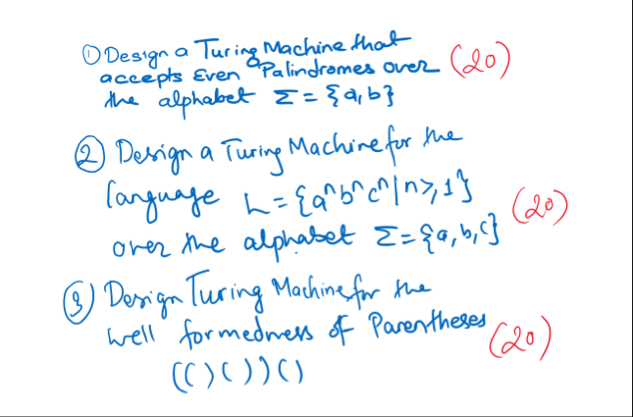 ① Design a Turing Machine that
accepts Even Palindromes over (20)
the alphabet Σ = {a,b}
② Design a Turing Machine for the
language L = {aⁿbⁿcⁿ | n ≥ 1}
over the alphabet Σ = {a,b,c} (20)
③ Design Turing Machine for the
well formedness of Parentheses (20)
(()())()